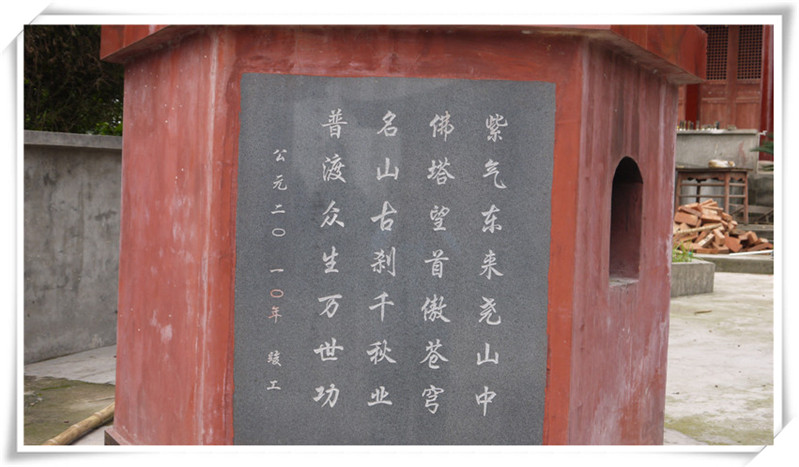 紫气东来尧山中
佛塔望首傲苍穹
名山古刹千秋业
普渡众生万世功
公元二〇一〇年竣工